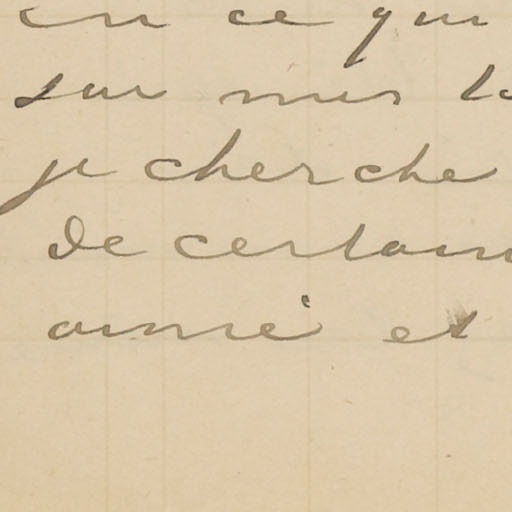 en ce qui
sur mes
je cherche
de certain
aimé et